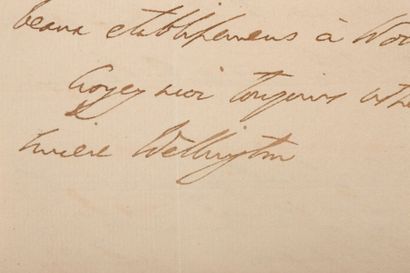 beaux etablissemens à Wo
Croyez moi toujours votre
Wellington